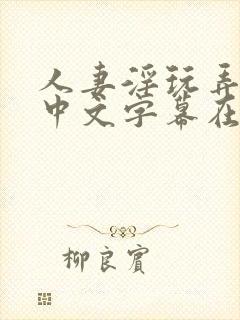 人妻淫玩弄
中文字幕在
柳良賓